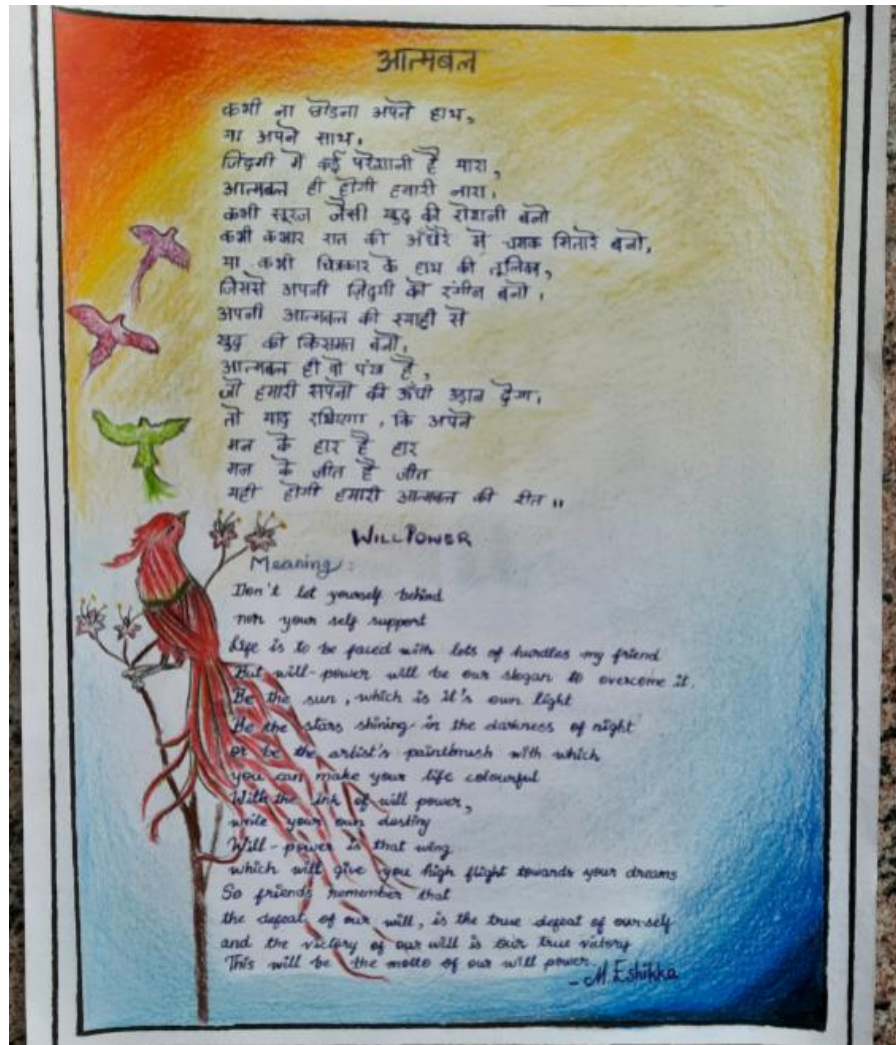 आत्मबल
कभी ना छोडना अपने हाथ,
ना अपने साथ,
जिंदगी में कई परेशानी है यारा,
आत्मबल ही होगी हमारी नारा।
कभी सूरज जैसी खुद की रोशनी बनो
कभी कभार रात की अँधेरे में चमक सितारे बनो,
या कभी चित्रकार के हाथ की तूलिका,
जिससे अपनी ज़िंदगी को रंगीन बनो।
अपनी आत्मबल की स्याही से
खुद की किसमत बनो,
आत्मबल ही वो पंख है,
जो हमारी सपनो की ऊँची उड़ान देगा,
तो याद रखिएगा, कि अपने
मन के हार है हार
मन के जीत है जीत
यही होगी हमारी आत्मबल की रीत॥
WILLPOWER
Meaning:
Don't let yourself behind
nor your self support
Life is to be faced with lots of hurdles my friend
But will-power will be our slogan to overcome it.
Be the sun, which is it's own light
Be the stars shining in the darkness of night
or be the artist's paintbrush with which
you can make your life colourful
With the ink of will power,
write your own destiny
Will-power is that wing
which will give you high flight towards your dreams
So friends remember that
the defeat of our will, is the true defeat of ourself
and the victory of our will is our true victory
This will be the motto of our will power.
- M. Eshikka